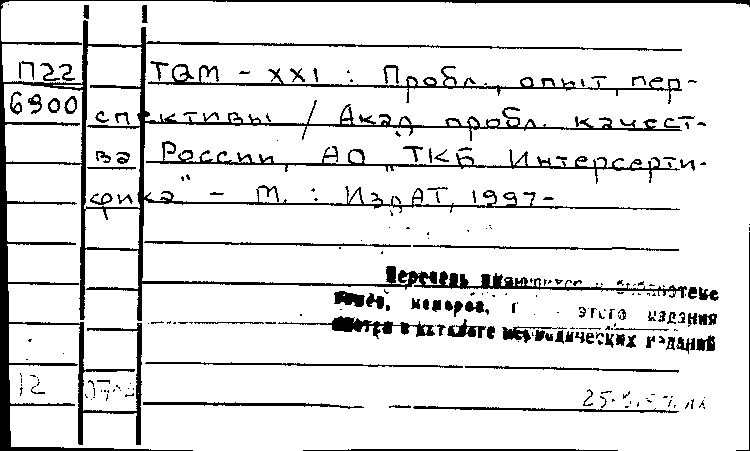 П22 TQM - XXI : Пробл., опыт, пер-
6900 спективы / Акад. пробл. качест-
ва России, АО „ТКБ Интерсерти-
фика" - М. : ИздАТ, 1997-
Перечень библиотеке
томов, номеров, этого издания
в каталоге периодических изданий
12